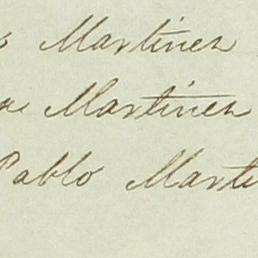 Martinez
Martinez
Pablo Marti